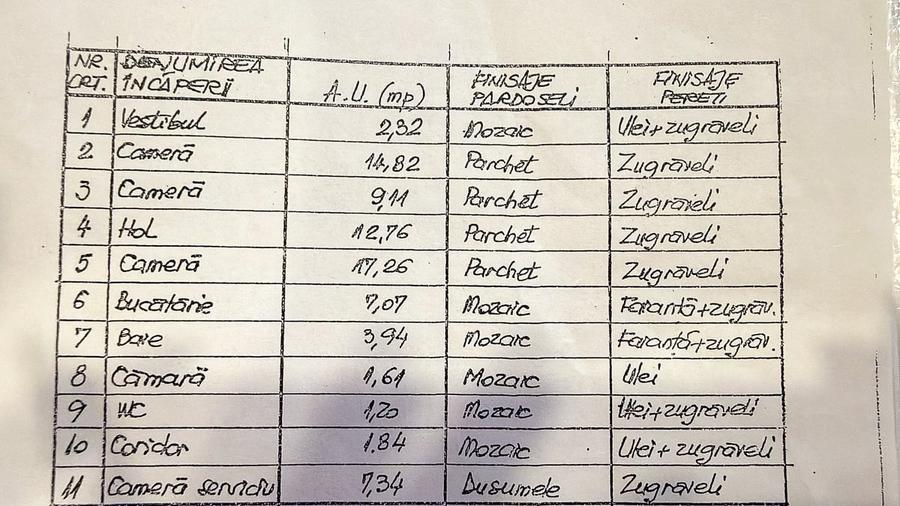 NR. CRT. DENUMIREA ÎNCĂPERII A.U. (mp) FINISAJE PARDOSELI FINISAJE PEREȚI
1 Vestibul 2,32 Mozaic Ulei+zugrăveli
2 Cameră 14,82 Parchet Zugrăveli
3 Cameră 9,11 Parchet Zugrăveli
4 Hol 12,76 Parchet Zugrăveli
5 Cameră 17,26 Parchet Zugrăveli
6 Bucătărie 7,07 Mozaic Faianță+zugrăv.
7 Baie 3,94 Mozaic Faianță+zugrăv.
8 Cămară 1,61 Mozaic Ulei
9 WC 1,20 Mozaic Ulei+zugrăveli
10 Coridor 1.84 Mozaic Ulei+zugrăveli
11 Cameră serviciu 7,34 Dușumele Zugrăveli